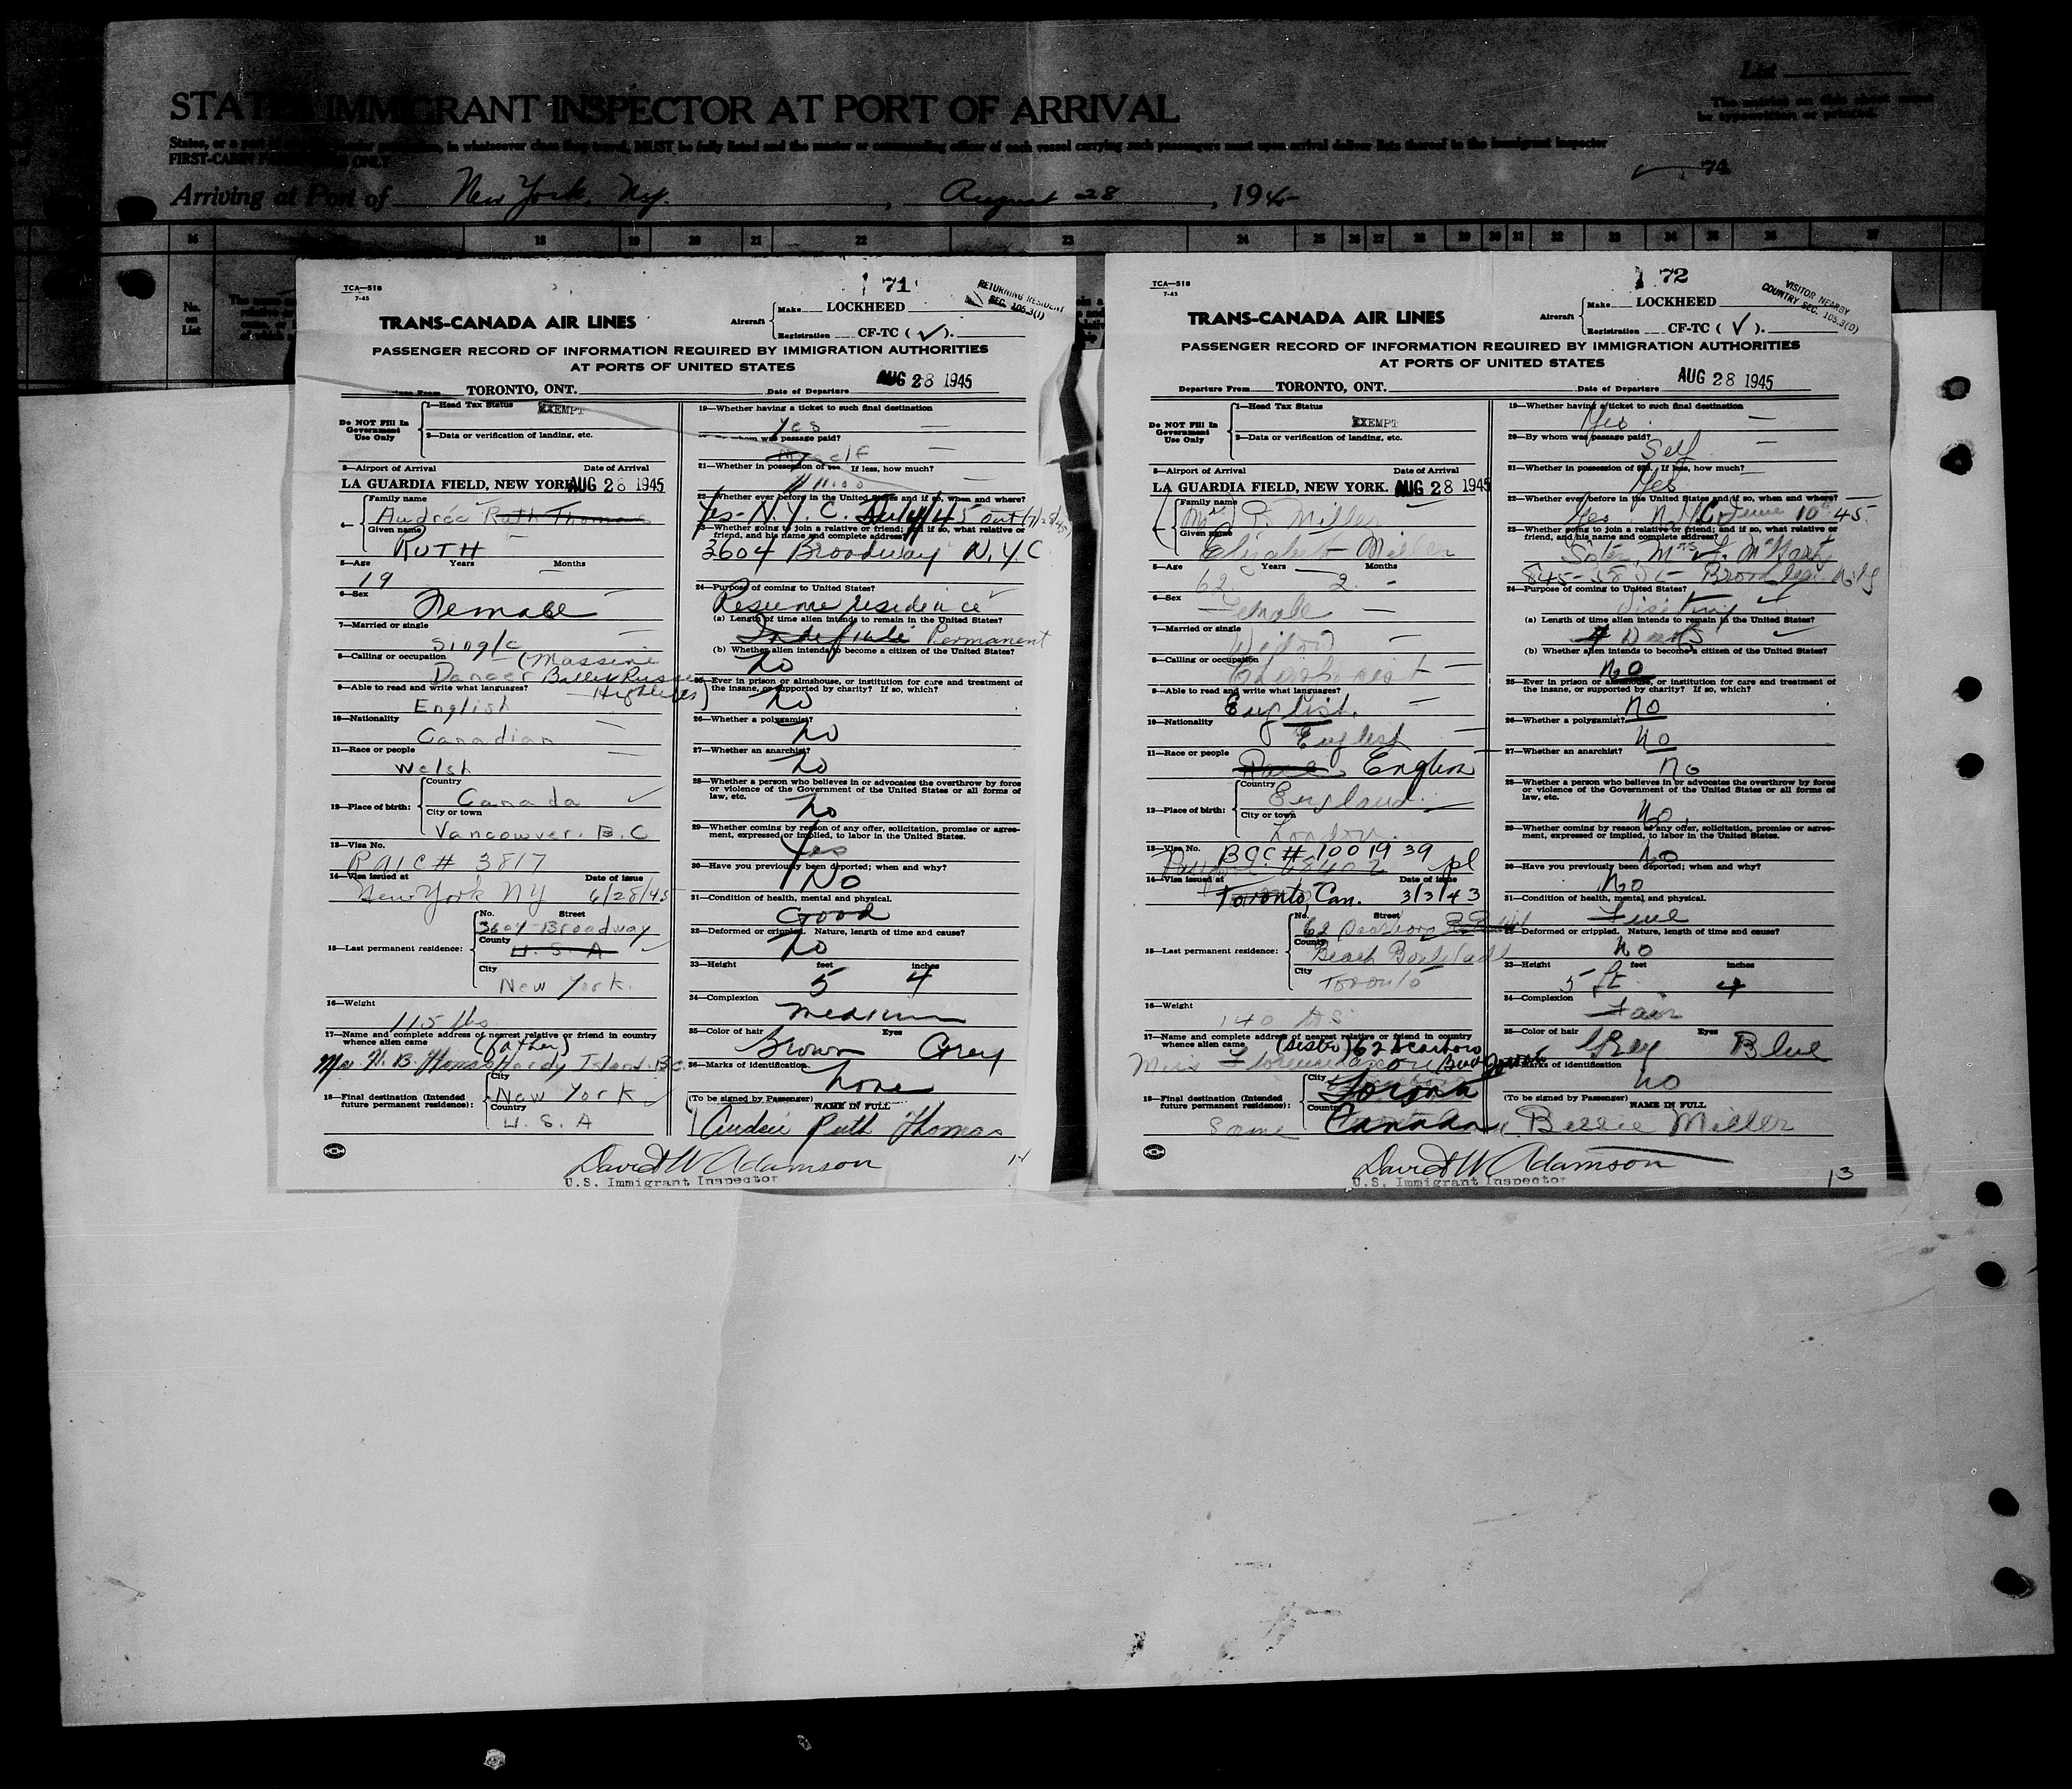 List
STATES IMMIGRANT INSPECTOR AT PORT OF ARRIVAL
FIRST-CABIN PASSENGERS ONLY
Arriving at Port of New York, N.Y. , August 28 , 1945
74
No. on List
TCA—518
7-45
71
RETURNING RESIDENT
SEC. 105.3(1)
TRANS-CANADA AIR LINES
Aircraft
Make LOCKHEED
Registration CF-TC (✓).
PASSENGER RECORD OF INFORMATION REQUIRED BY IMMIGRATION AUTHORITIES
AT PORTS OF UNITED STATES
TORONTO, ONT. Date of Departure AUG 28 1945
Do NOT Fill In
Government
Use Only
1—Head Tax Status EXEMPT
2—Data or verification of landing, etc.
3—Airport of Arrival Date of Arrival
LA GUARDIA FIELD, NEW YORK. AUG 28 1945
4—
Family name
Andrée Ruth Thomas
Given name
RUTH
5—Age Years Months
19
6—Sex
Female
7—Married or single
Single
8—Calling or occupation
Dancer (Massine Ballet Russe Highlights)
9—Able to read and write what languages?
English
10—Nationality
Canadian
11—Race or people
Welsh
12—Place of birth:
Country
Canada
City or town
Vancouver. B.C
13—Visa No.
# 3817
14—Visa issued at Date of issue
New York NY 6/28/45
15—Last permanent residence:
No. Street
3604-Broadway
County
U.S.A
City
New York.
16—Weight
115 lbs
17—Name and complete address of nearest relative or friend in country
whence alien came (father)
Mr. H. B. Thomas Hardy Island. B.C.
18—Final destination (Intended
future permanent residence):
City
New York
Country
U.S.A
19—Whether having a ticket to such final destination
Yes
whom was passage paid?
Myself
21—Whether in possession of If less, how much?
22—Whether ever before in the United States and if so, when and where?
Yes - N.Y.C.
23—Whether going to join a relative or friend; and if so, what relative or
friend, and his name and complete address?
3604 Broadway N.Y.C
24—Purpose of coming to United States?
Resume residence
(a) Length of time alien intends to remain in the United States?
Indefinite Permanent
(b) Whether alien intends to become a citizen of the United States?
no
25—Ever in prison or almshouse, or institution for care and treatment of
the insane, or supported by charity? If so, which?
no
26—Whether a polygamist?
no
27—Whether an anarchist?
no
28—Whether a person who believes in or advocates the overthrow by force
or violence of the Government of the United States or all forms of
law, etc.
no
29—Whether coming by reason of any offer, solicitation, promise or agree-
ment, expressed or implied, to labor in the United States.
Yes
30—Have you previously been deported; when and why?
NO
31—Condition of health, mental and physical.
Good
32—Deformed or crippled. Nature, length of time and cause?
no
33—Height feet inches
5 4
34—Complexion
medium
35—Color of hair Eyes
Brown Grey
36—Marks of identification.
none
(To be signed by Passenger) NAME IN FULL
Andrée Ruth Thomas
David W Adamson
U.S. Immigrant Inspector
TCA—518
7-45
72
VISITOR NEARBY
COUNTRY SEC. 105.3(0)
TRANS-CANADA AIR LINES
Aircraft
Make LOCKHEED
Registration CF-TC (✓).
PASSENGER RECORD OF INFORMATION REQUIRED BY IMMIGRATION AUTHORITIES
AT PORTS OF UNITED STATES
Departure From TORONTO, ONT. Date of Departure AUG 28 1945
Do NOT Fill In
Government
Use Only
1—Head Tax Status EXEMPT
2—Data or verification of landing, etc.
3—Airport of Arrival Date of Arrival
LA GUARDIA FIELD, NEW YORK. AUG 28 1945
Family name
Miller
Given name
Elizabeth Miller
5—Age Years Months
62 2
6—Sex
Female
7—Married or single
Widow
8—Calling or occupation
9—Able to read and write what languages?
English.
10—Nationality
English
11—Race or people
English
12—Place of birth:
Country
England.
City or town
London.
13—Visa No. BCC # 1001939
14—Visa issued at Date of issue
Toronto, Can. 3/3/43
15—Last permanent residence:
No. Street
62
County
Beach
City
Toronto
16—Weight
140 lbs
17—Name and complete address of nearest relative or friend in country
whence alien came (Sister) 62 Scarboro
Miss
18—Final destination (Intended
future permanent residence):
City
Toronto
Country
Same Canada
19—Whether having a ticket to such final destination
Yes
20—By whom was passage paid?
Self
21—Whether in possession of $50. If less, how much?
Yes
22—Whether ever before in the United States and if so, when and where?
Yes N.Y.C. June 10 45
23—Whether going to join a relative or friend; and if so, what relative or
friend, and his name and complete address?
Sister Mrs
845-38 St Brooklyn N.Y
24—Purpose of coming to United States?
visiting
(a) Length of time alien intends to remain in the United States?
(b) Whether alien intends to become a citizen of the United States?
no
25—Ever in prison or almshouse, or institution for care and treatment of
the insane, or supported by charity? If so, which?
no
26—Whether a polygamist?
no
27—Whether an anarchist?
no
28—Whether a person who believes in or advocates the overthrow by force
or violence of the Government of the United States or all forms of
law, etc.
no
29—Whether coming by reason of any offer, solicitation, promise or agree-
ment, expressed or implied, to labor in the United States.
no
30—Have you previously been deported; when and why?
no
31—Condition of health, mental and physical.
Fine
32—Deformed or crippled. Nature, length of time and cause?
no
33—Height feet inches
5 ft. 4
34—Complexion
Fair
35—Color of hair Eyes
Grey Blue
36—Marks of identification
no
(To be signed by Passenger) NAME IN FULL
Bessie Miller
David W Adamson
U.S. Immigrant Inspector
13